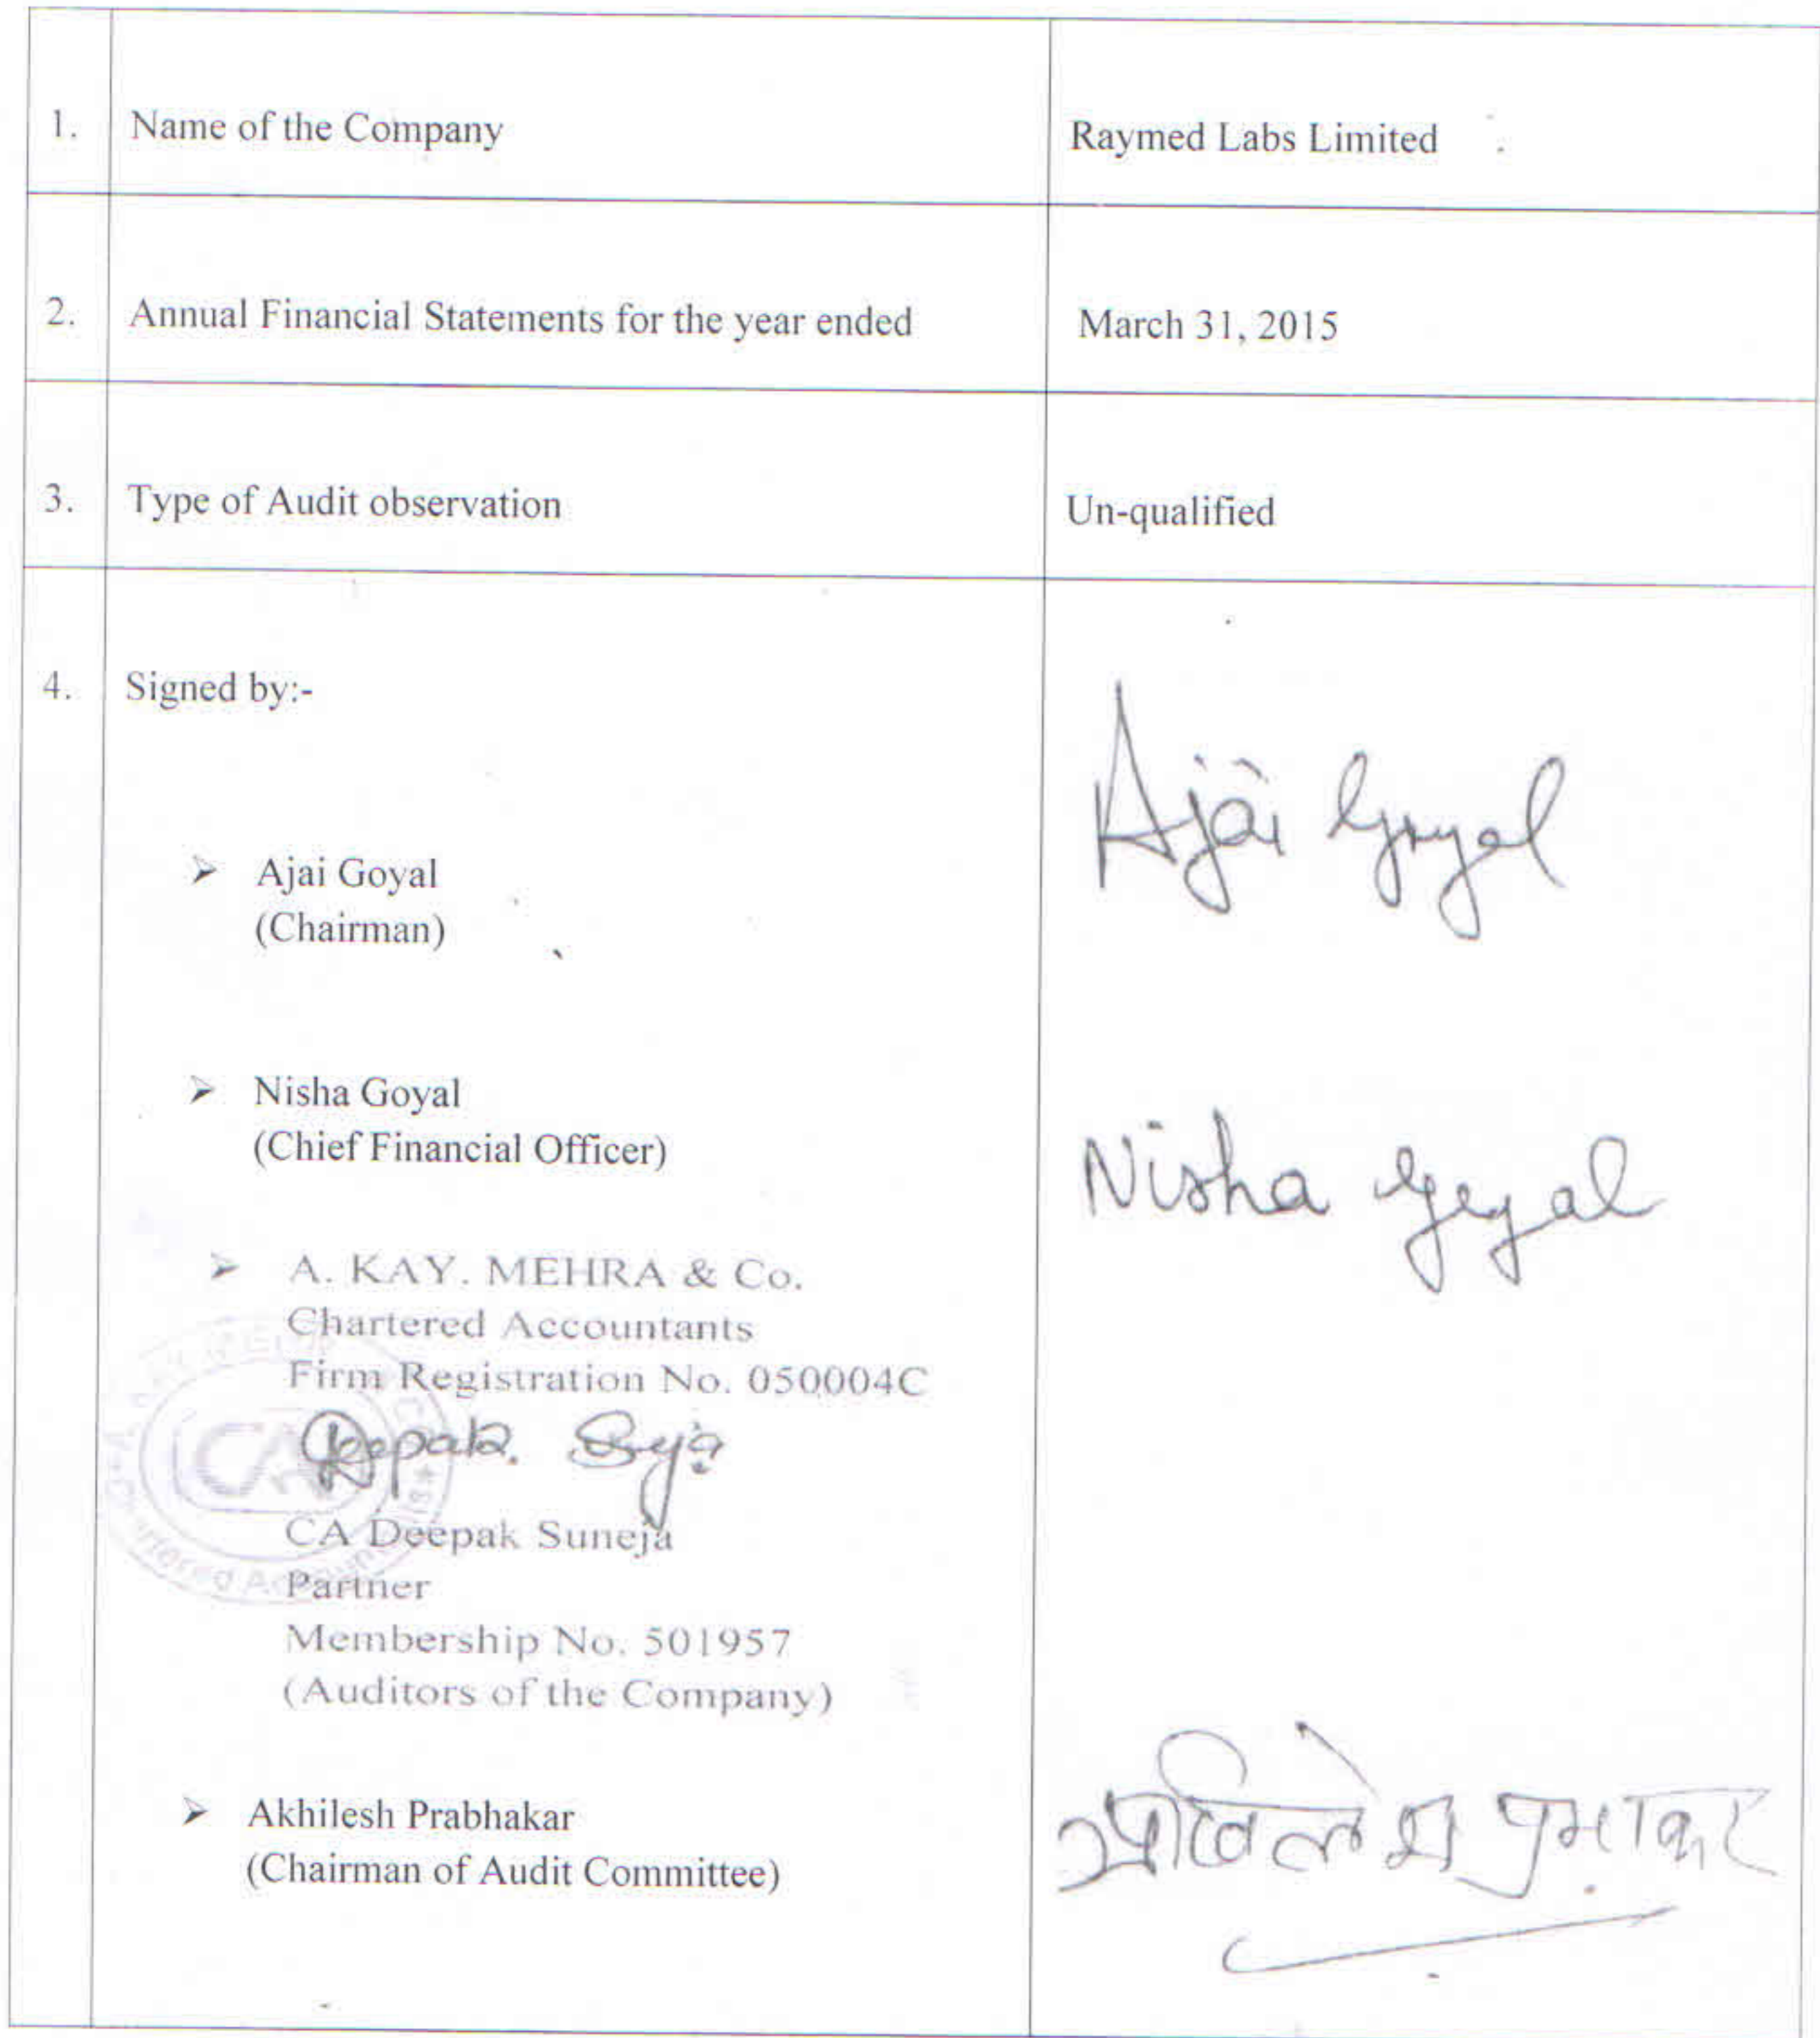 1. Name of the Company Raymed Labs Limited
2. Annual Financial Statements for the year ended March 31, 2015
3. Type of Audit observation Un-qualified
4. Signed by:-
➢ Ajai Goyal
(Chairman)
Ajai Goyal
➢ Nisha Goyal
(Chief Financial Officer)
Nisha Goyal
➢ A. KAY. MEHRA & Co.
Chartered Accountants
Firm Registration No. 050004C
CA
Deepak
CA Deepak Suneja
Partner
Membership No. 501957
(Auditors of the Company)
➢ Akhilesh Prabhakar
(Chairman of Audit Committee)
अखिलेश प्रभाकर